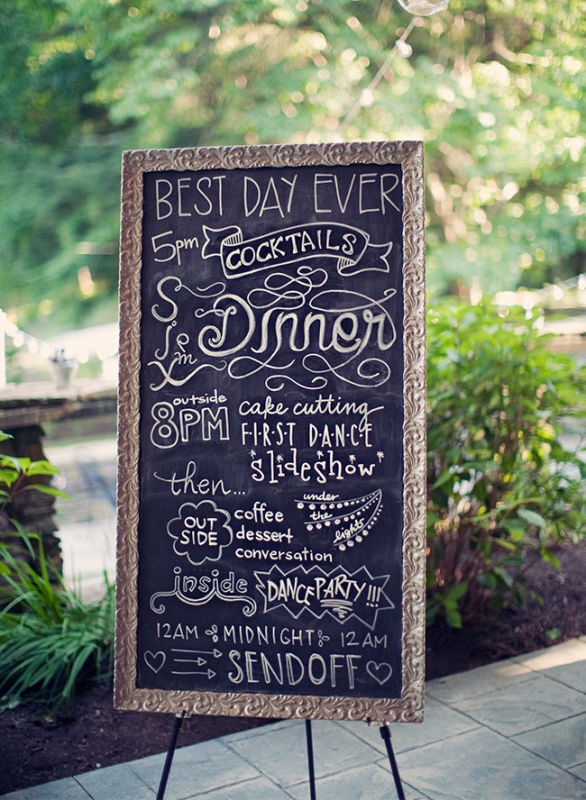 BEST DAY EVER
5pm COCKTAILS
Six pm Dinner
outside
8PM
cake cutting
F·I·R·S·T D·A·N·C·E
'slideshow'
then...
OUT
SIDE
coffee
dessert
conversation
under
the
lights
inside DANCE PARTY!!!
12AM MIDNIGHT 12AM
SENDOFF